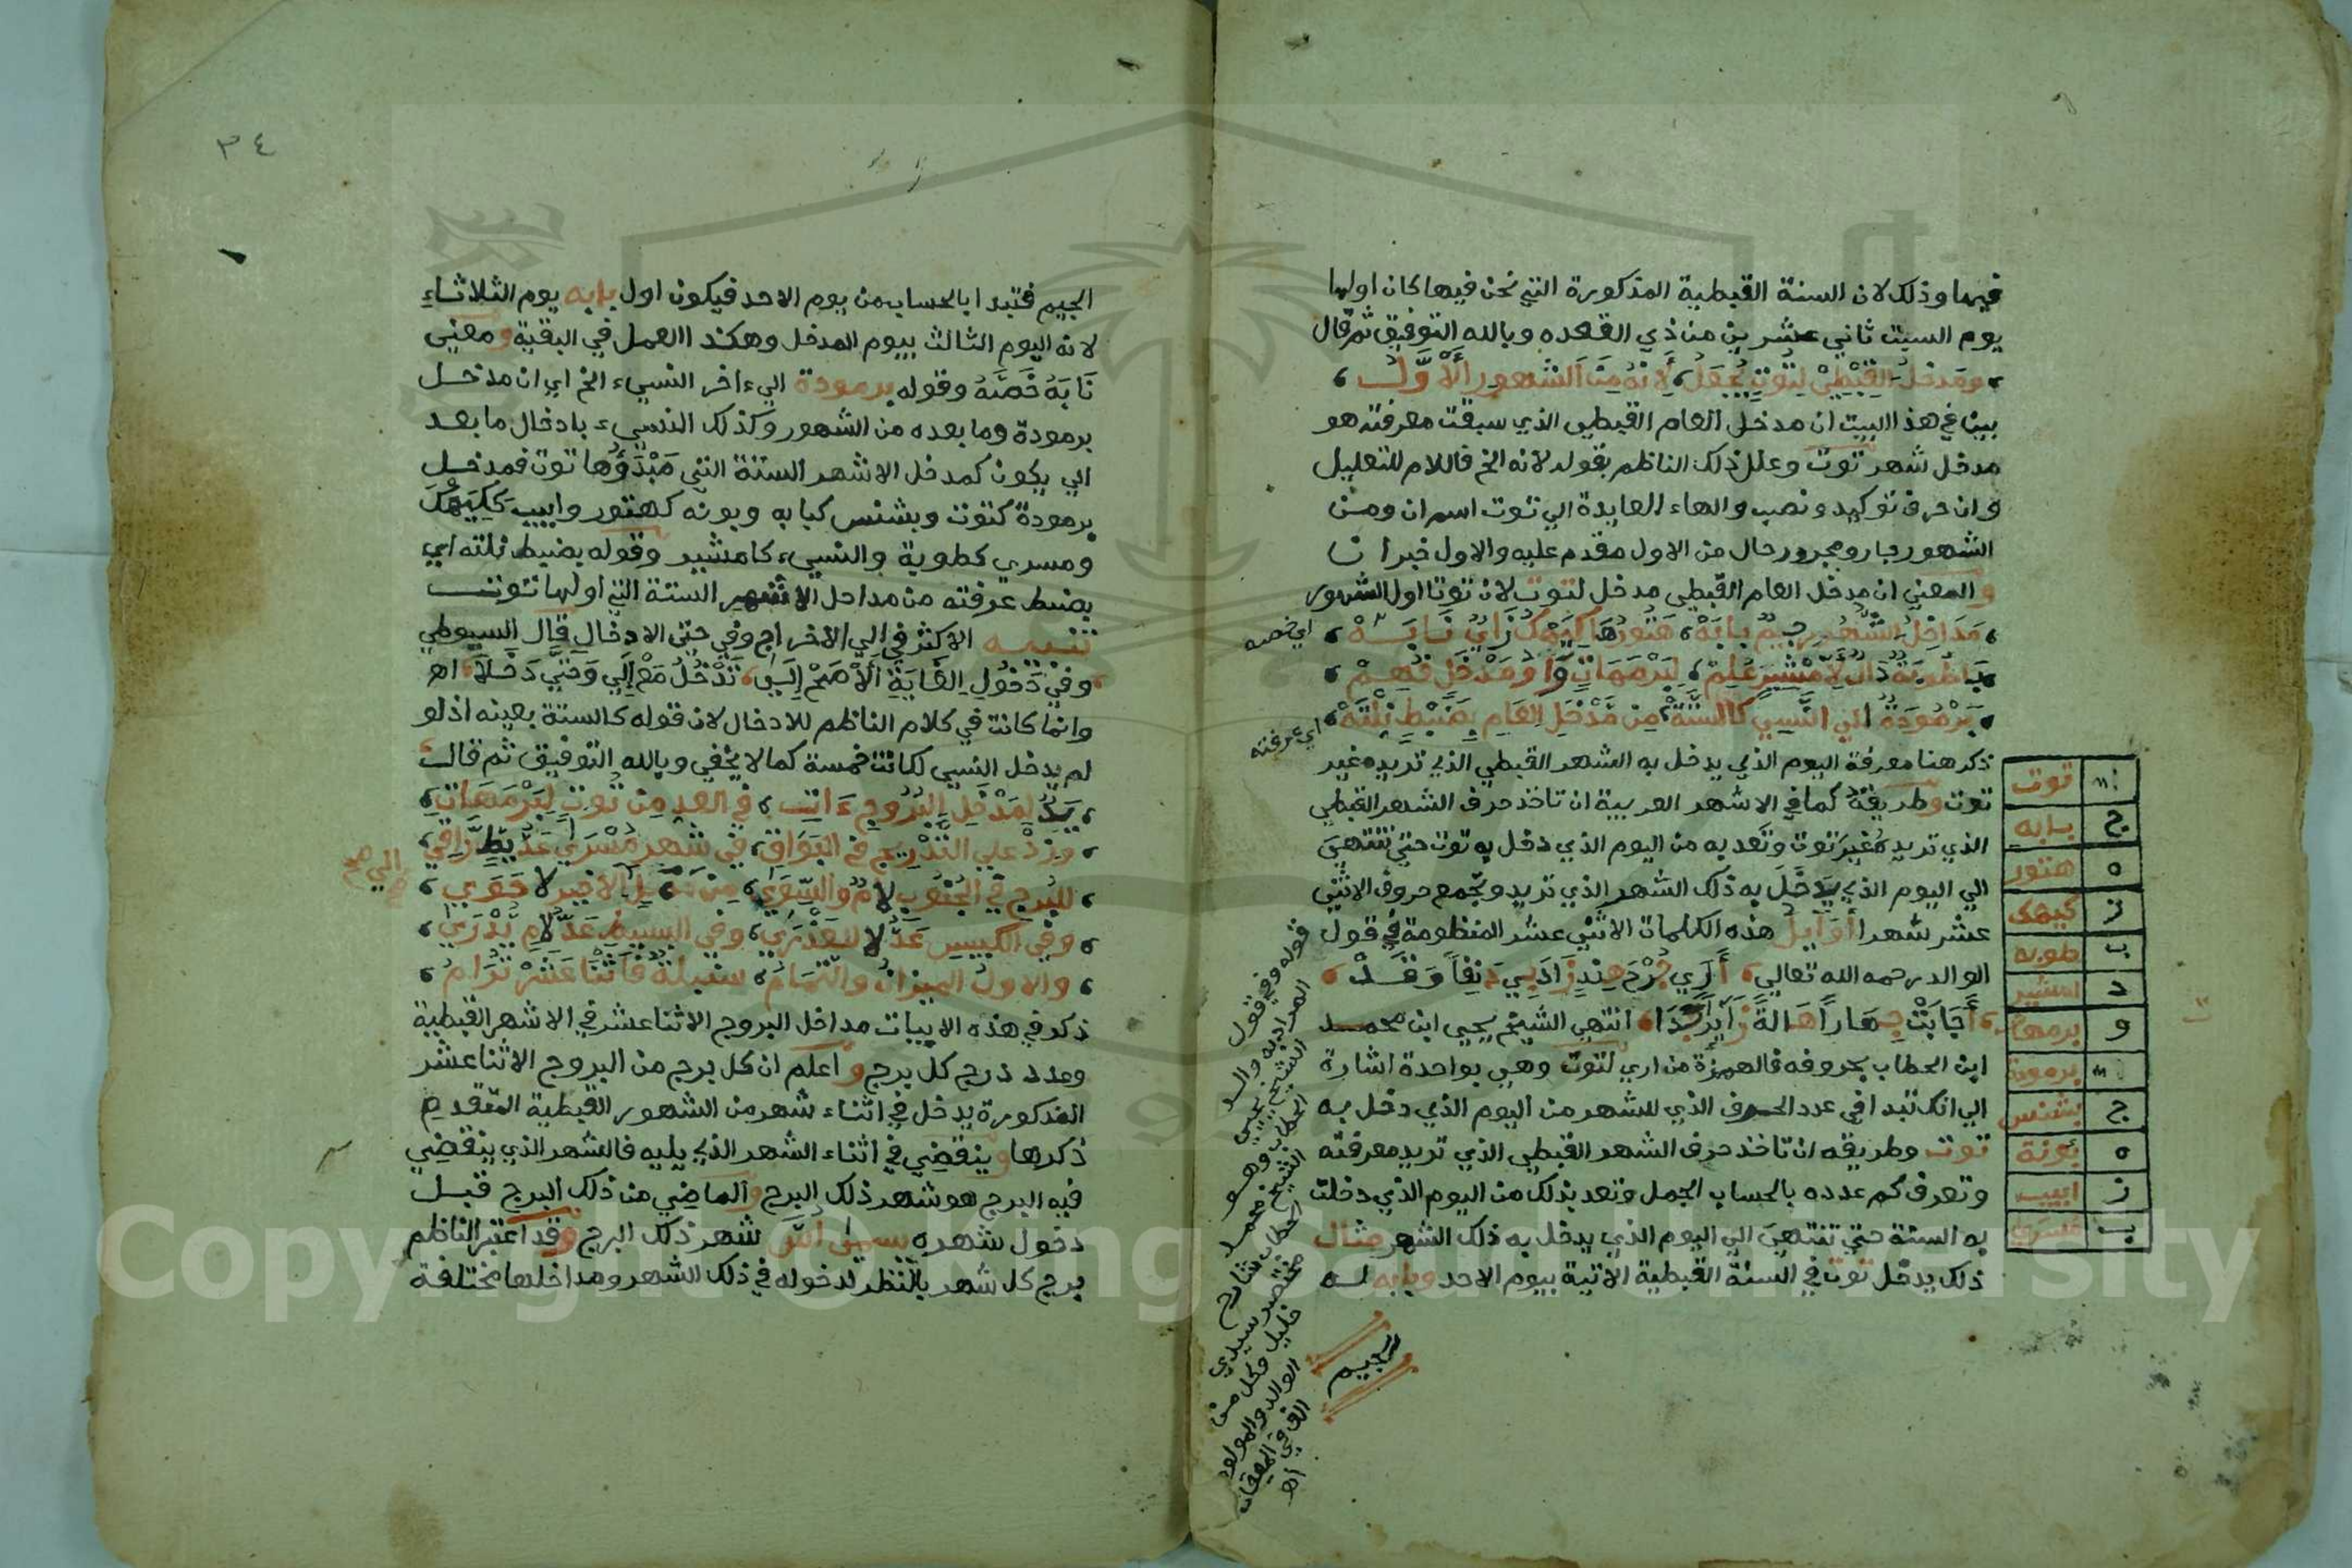 فيها وذلك لان السنة القبطية المذكورة التي نحن فيها كان اولها
يوم السبت ثاني عشرين من ذي القعده وبالله التوفيق ثم قال
ومدخل القبطي لتوت يجعل، لانه من الشهور الاول
بين في هذا البيت ان مدخل العام القبطي الذي سبقت معرفته هو
مدخل شهر توت وعلل ذلك الناظم بقوله لانه الخ فاللام للتعليل
وان حرف توكيد ونصب والهاء العايدة الي توت اسم ان ومن
الشهور جار ومجرور حال من الاول مقدم عليه والاول خبر ان
والمعني ان مدخل العام القبطي مدخل لتوت لان توتا اول الشهور
مداخل الشهور جيم بابه، هتورها كيهك زاي نابه
اي خصه
باطوبة دال لامشير علم، لبرمهات واو مدخل فهم
برمودة الي النسي كالستة، من مدخل العام بضبط نلته
اي عرفته
ذكر هنا معرفة اليوم الذي يدخل به الشهر القبطي الذي تريده غير
توت وطريقة كما في الاشهر العربية ان تاخذ حرف الشهر القبطي
الذي تريده غير توت وتعد به من اليوم الذي دخل به توت حتي تنتهي
الي اليوم الذي يدخل به ذلك الشهر الذي تريد ويجمع حروف الاثني
عشر شهرا أوايل هذه الكلمات الاثني عشر المنظومة في قول
الوالد رحمه الله تعالي، أري جرم هند زاد بي دنفا وقد
أجابت جهارا هالة زاير بدا، انتهي الشيخ يحيي ابن محمد
ابن الحطاب بحروفه فالهمزة من اري لتوت وهي بواحدة اشارة
الي انك تبدا في عدد الحرف الذي للشهر من اليوم الذي دخل به
توت وطريقه ان تاخذ حرف الشهر القبطي الذي تريد معرفته
وتعرف كم عدده بالحساب الجمل وتعد بذلك من اليوم الذي دخلت
به السنة حتي تنتهي الي اليوم الذي يدخل به ذلك الشهر مثال
ذلك يدخل توت في السنة القبطية الاتية بيوم الاحد وبابه له
الجيم
توت
ج بابه
ه هتور
ز كيهك
ب طوبه
د امشير
و برمهات
برمودة
ج بشنس
ه بونة
ز ابيب
ب مسري
قوله وفي قول
المراد به والد
الشيخ يحيي
الحطاب وهو
الشيخ محمد
الحطاب شارح
مختصر سيدي
خليل وكل من
الوالد والمولود
الف في الميقات
اه
٣٤
الجيم فتبدا بالحساب من يوم الاحد فيكون اول بابه يوم الثلاثاء
لانه اليوم الثالث بيوم المدخل وهكذا العمل في البقية ومعني
نابه خصه وقوله برمودة الي اخر النسيء الخ اي ان مدخل
برمودة وما بعده من الشهور وكذلك النسيء بادخال ما بعد
الي يكون كمدخل الاشهر الستة التي مبدؤها توت فمدخل
برمودة كتوت وبشنس كبابه وبونه كهتور وابيب ككيهك
ومسري كطوبة والنسيء كامشير وقوله بضبط نلته اي
بضبط عرفته من مداخل الاشهر الستة التي اولها توت
تنبيه الاكثر في الي الاخراج وفي حتي الادخال قال السيوطي
وفي دخول الغاية الاصح الي، تدخل مع الي وحتي دخلا اه
وانما كانت في كلام الناظم للادخال لان قوله كالستة بعينه اذ لو
لم يدخل النسي لكانت خمسة كما لا يخفي وبالله التوفيق ثم قال
يد لمدخل البروج ءات، في العد من توت لبرمهات
وزد علي التدريج في البواقي، في شهر مسري عد يط راقي
للبرج في الجنوب لام والسوي، من الاخير لا حوي
الي صح
وفي الكبيس عد لا للعذري، وفي البسيط عد لام يدري
والاول الميزان والتمام، سنبلة فاثنا عشر توام
ذكر في هذه الابيات مداخل البروج الاثنا عشر في الاشهر القبطية
وعدد درج كل برج واعلم ان كل برج من البروج الاثنا عشر
المذكورة يدخل في اثناء شهر من الشهور القبطية المتقدم
ذكرها وينقضي في اثناء الشهر الذي يليه فالشهر الذي ينقضي
فيه البرج هو شهر ذلك البرج والماضي من ذلك البرج قبل
دخول شهره يسمي شهر ذلك البرج وقد اعتبر الناظم
برج كل شهر بالنظر لدخوله في ذلك الشهر ومداخلها مختلفة
Copyright © King Saud University